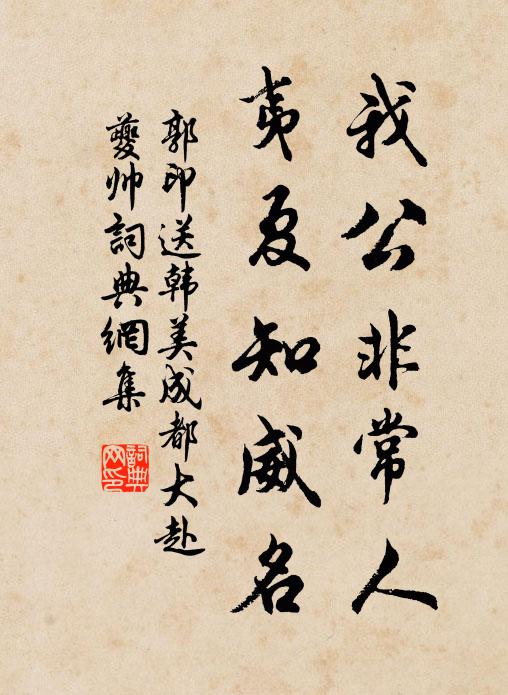 我公非常人
夷夏知威名
郭印送韩美成都大赴
夔帅詞典網集
詞典网印